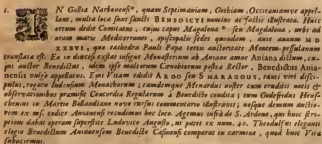 IN Gothia Narbonensi<sup>a</sup>, quam Septimaniam, Gothiam, Occitaniamve appel-
lant, multa loca sunt sancti BENEDICTI nomine ac factis illustrata. Huic
ortum dedit Comitatus, cujus caput Magdalona seu Magalona, urbs ad
oram maris Mediterranei, episcopalis sedes quondam, ante annum MD
XXXVI, quo cathedra Pauli Papæ tertii auctoritate Montem-pessulanum
translata est. Ea in diœcesi exstat insigne Monasterium ab Aniano amne Aniana dictum, cu-
jus auctor Benedictus, idem ipse modernæ Cœnobiorum postea Rector, Benedictus Ania-
nensis vulgo appellatus. Ejus Vitam edidit ARDO seu SMARAGDUS, tanti viri disci-
pulus, eamque Indensium Monachorum; eamdemque Menardus noster cum eruditis notis &
observationibus præmisit Concordiæ Regularum à Benedicto condita; tum Godefridus Hens-
chenius in Martio Bollandiano novo rursus commentario illustravit; nosque demum auctio-
rem ex ms. codice Anianensi recudimus hoc loco. Agemus infrà de S. Ardone, qui hunc scri-
psit dabat operam superstite Ludovico Augusto, ut patet ex num. 42. Theodulfus eleganti
elogio Benedictum Anianensem Benedicto Casinensi comparat in carmine, quod huic Vitæ
subjicemus.